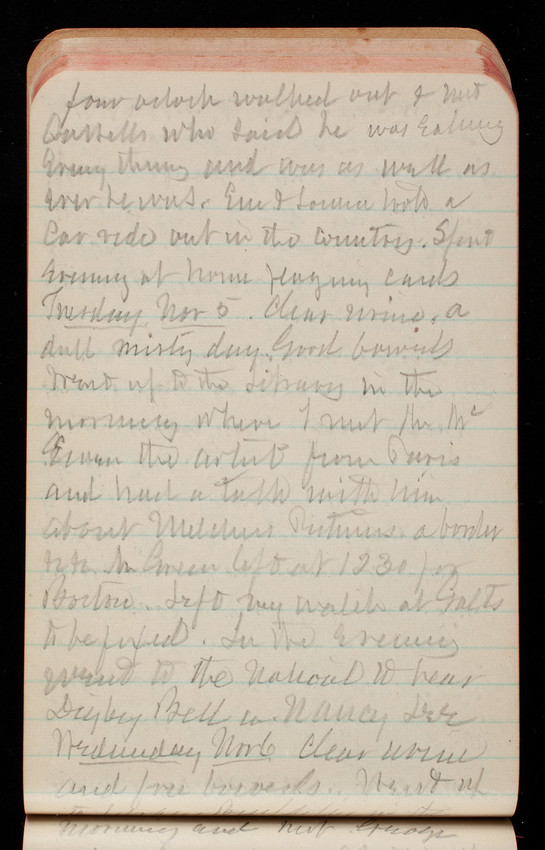 four oclock walked out & met
who said he was Eating
Every thing and was as well as
ever he was. Em & Louisa took a
Car ride out in the Country. Spent
Evening at home playing cards
Tuesday Nov 5. Clear urine. a
dull misty day. Good bowels
Went up to the Library in the
morning where I met Mr. Mc
Ewen the artist from Paris
and had a talk with him
about Melchers Pictures. a border
left at 1230 for
Boston. Left my watch at Galts
to be fixed. In the Evening
went to the National to hear
Digby Bell in Nancy Lee
Wednesday Nov 6 Clear urine
and free bowels. Went up
morning and met